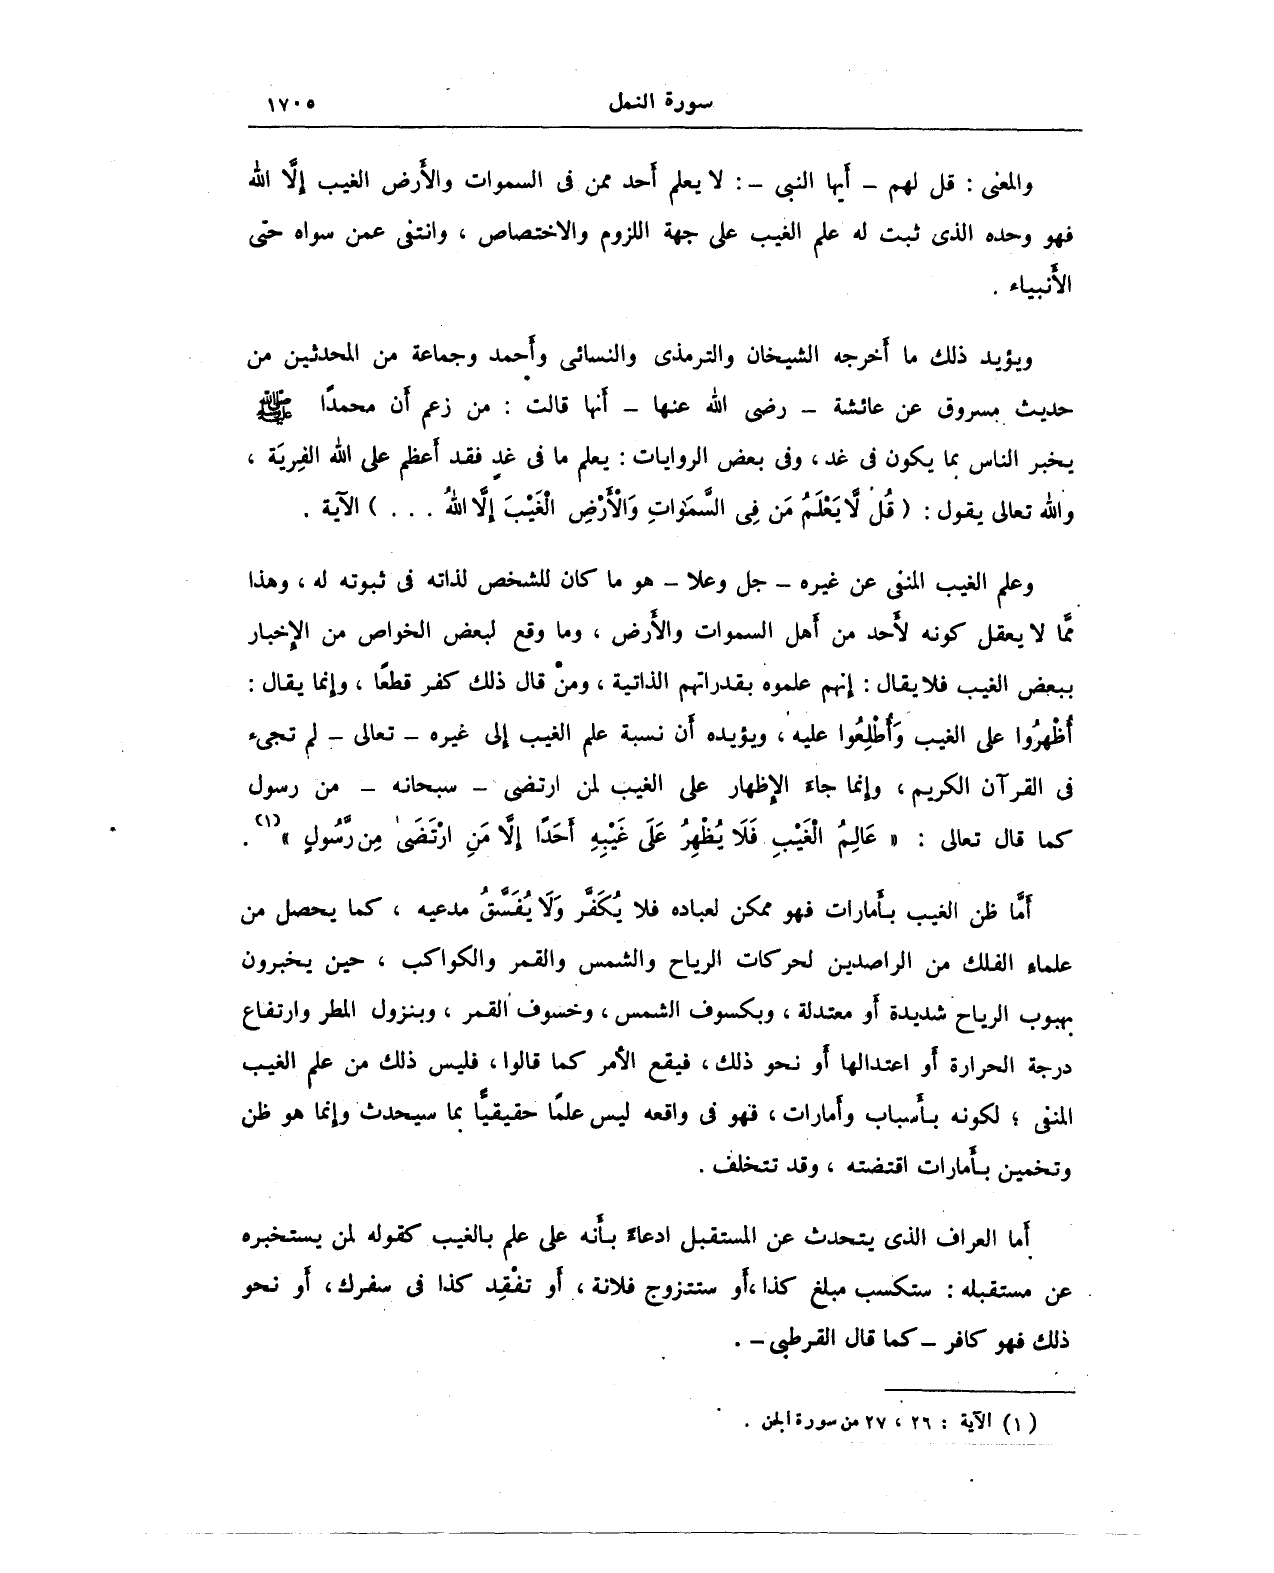 سورة النمل ١٧٠٥
والمعنى : قل لهم – أيها النبى – : لا يعلم أحد ممن فى السموات والأرض الغيب إلَّا الله
فهو وحده الذى ثبت له علم الغيب على جهة اللزوم والاختصاص ، وانتفى عمن سواه حتى
الأنبياء .
ويؤيد ذلك ما أخرجه الشيخان والترمذى والنسائى وأحمد وجماعة من المحدثين من
حديث مسروق عن عائشة – رضى الله عنها – أنها قالت : من زعم أن محمدًا ﷺ
يخبر الناس بما يكون فى غد ، وفى بعض الروايات : يعلم ما فى غدٍ فقد أعظم على الله الفِريَة ،
والله تعالى يقول : ( قُل لَّا يَعْلَمُ مَن فِى السَّمَوَاتِ وَالْأَرْضِ الْغَيْبَ إِلَّا اللهُ . . . ) الآية .
وعلم الغيب المنفى عن غيره – جل وعلا – هو ما كان للشخص لذاته فى ثبوته له ، وهذا
ممَّا لا يعقل كونه لأحد من أهل السموات والأرض ، وما وقع لبعض الخواص من الإخبار
ببعض الغيب فلا يقال : إنهم علموه بقدراتهم الذاتية ، ومنْ قال ذلك كفر قطعًا ، وإنما يقال :
أُظْهِرُوا على الغيب وَأُطْلِعُوا عليه ، ويؤيده أن نسبة علم الغيب إلى غيره – تعالى – لم تجىء
فى القرآن الكريم ، وإنما جاءَ الإظهار على الغيب لمن ارتضى – سبحانه – من رسول
كما قال تعالى : « عَالِمُ الْغَيْبِ فَلَا يُظْهِرُ عَلَى غَيْبِهِ أَحَدًا إِلَّا مَنِ ارْتَضَىٰ مِن رَّسُولٍ »(١) .
أمَّا ظن الغيب بأمارات فهو ممكن لعباده فلا يُكَفَّر وَلَا يُفَسَّقُ مدعيه ، كما يحصل من
علماء الفلك من الراصدين لحركات الرياح والشمس والقمر والكواكب ، حين يخبرون
بهبوب الرياح شديدة أو معتدلة ، وبكسوف الشمس ، وخسوف القمر ، وبنزول المطر وارتفاع
درجة الحرارة أو اعتدالها أو نحو ذلك ، فيقع الأمر كما قالوا ، فليس ذلك من علم الغيب
المنفى ؛ لكونه بأسباب وأمارات ، فهو فى واقعه ليس علمًا حقيقيًّا بما سيحدث وإنما هو ظن
وتخمين بأمارات اقتضته ، وقد تتخلف .
أما العراف الذى يتحدث عن المستقبل ادعاءً بأنه على علم بالغيب كقوله لمن يستخبره
عن مستقبله : ستكسب مبلغ كذا ، أو ستتزوج فلانة ، أو تفْقِد كذا فى سفرك ، أو نحو
ذلك فهو كافر – كما قال القرطبى – .
(١) الآية : ٢٦ ، ٢٧ من سورة الجن .